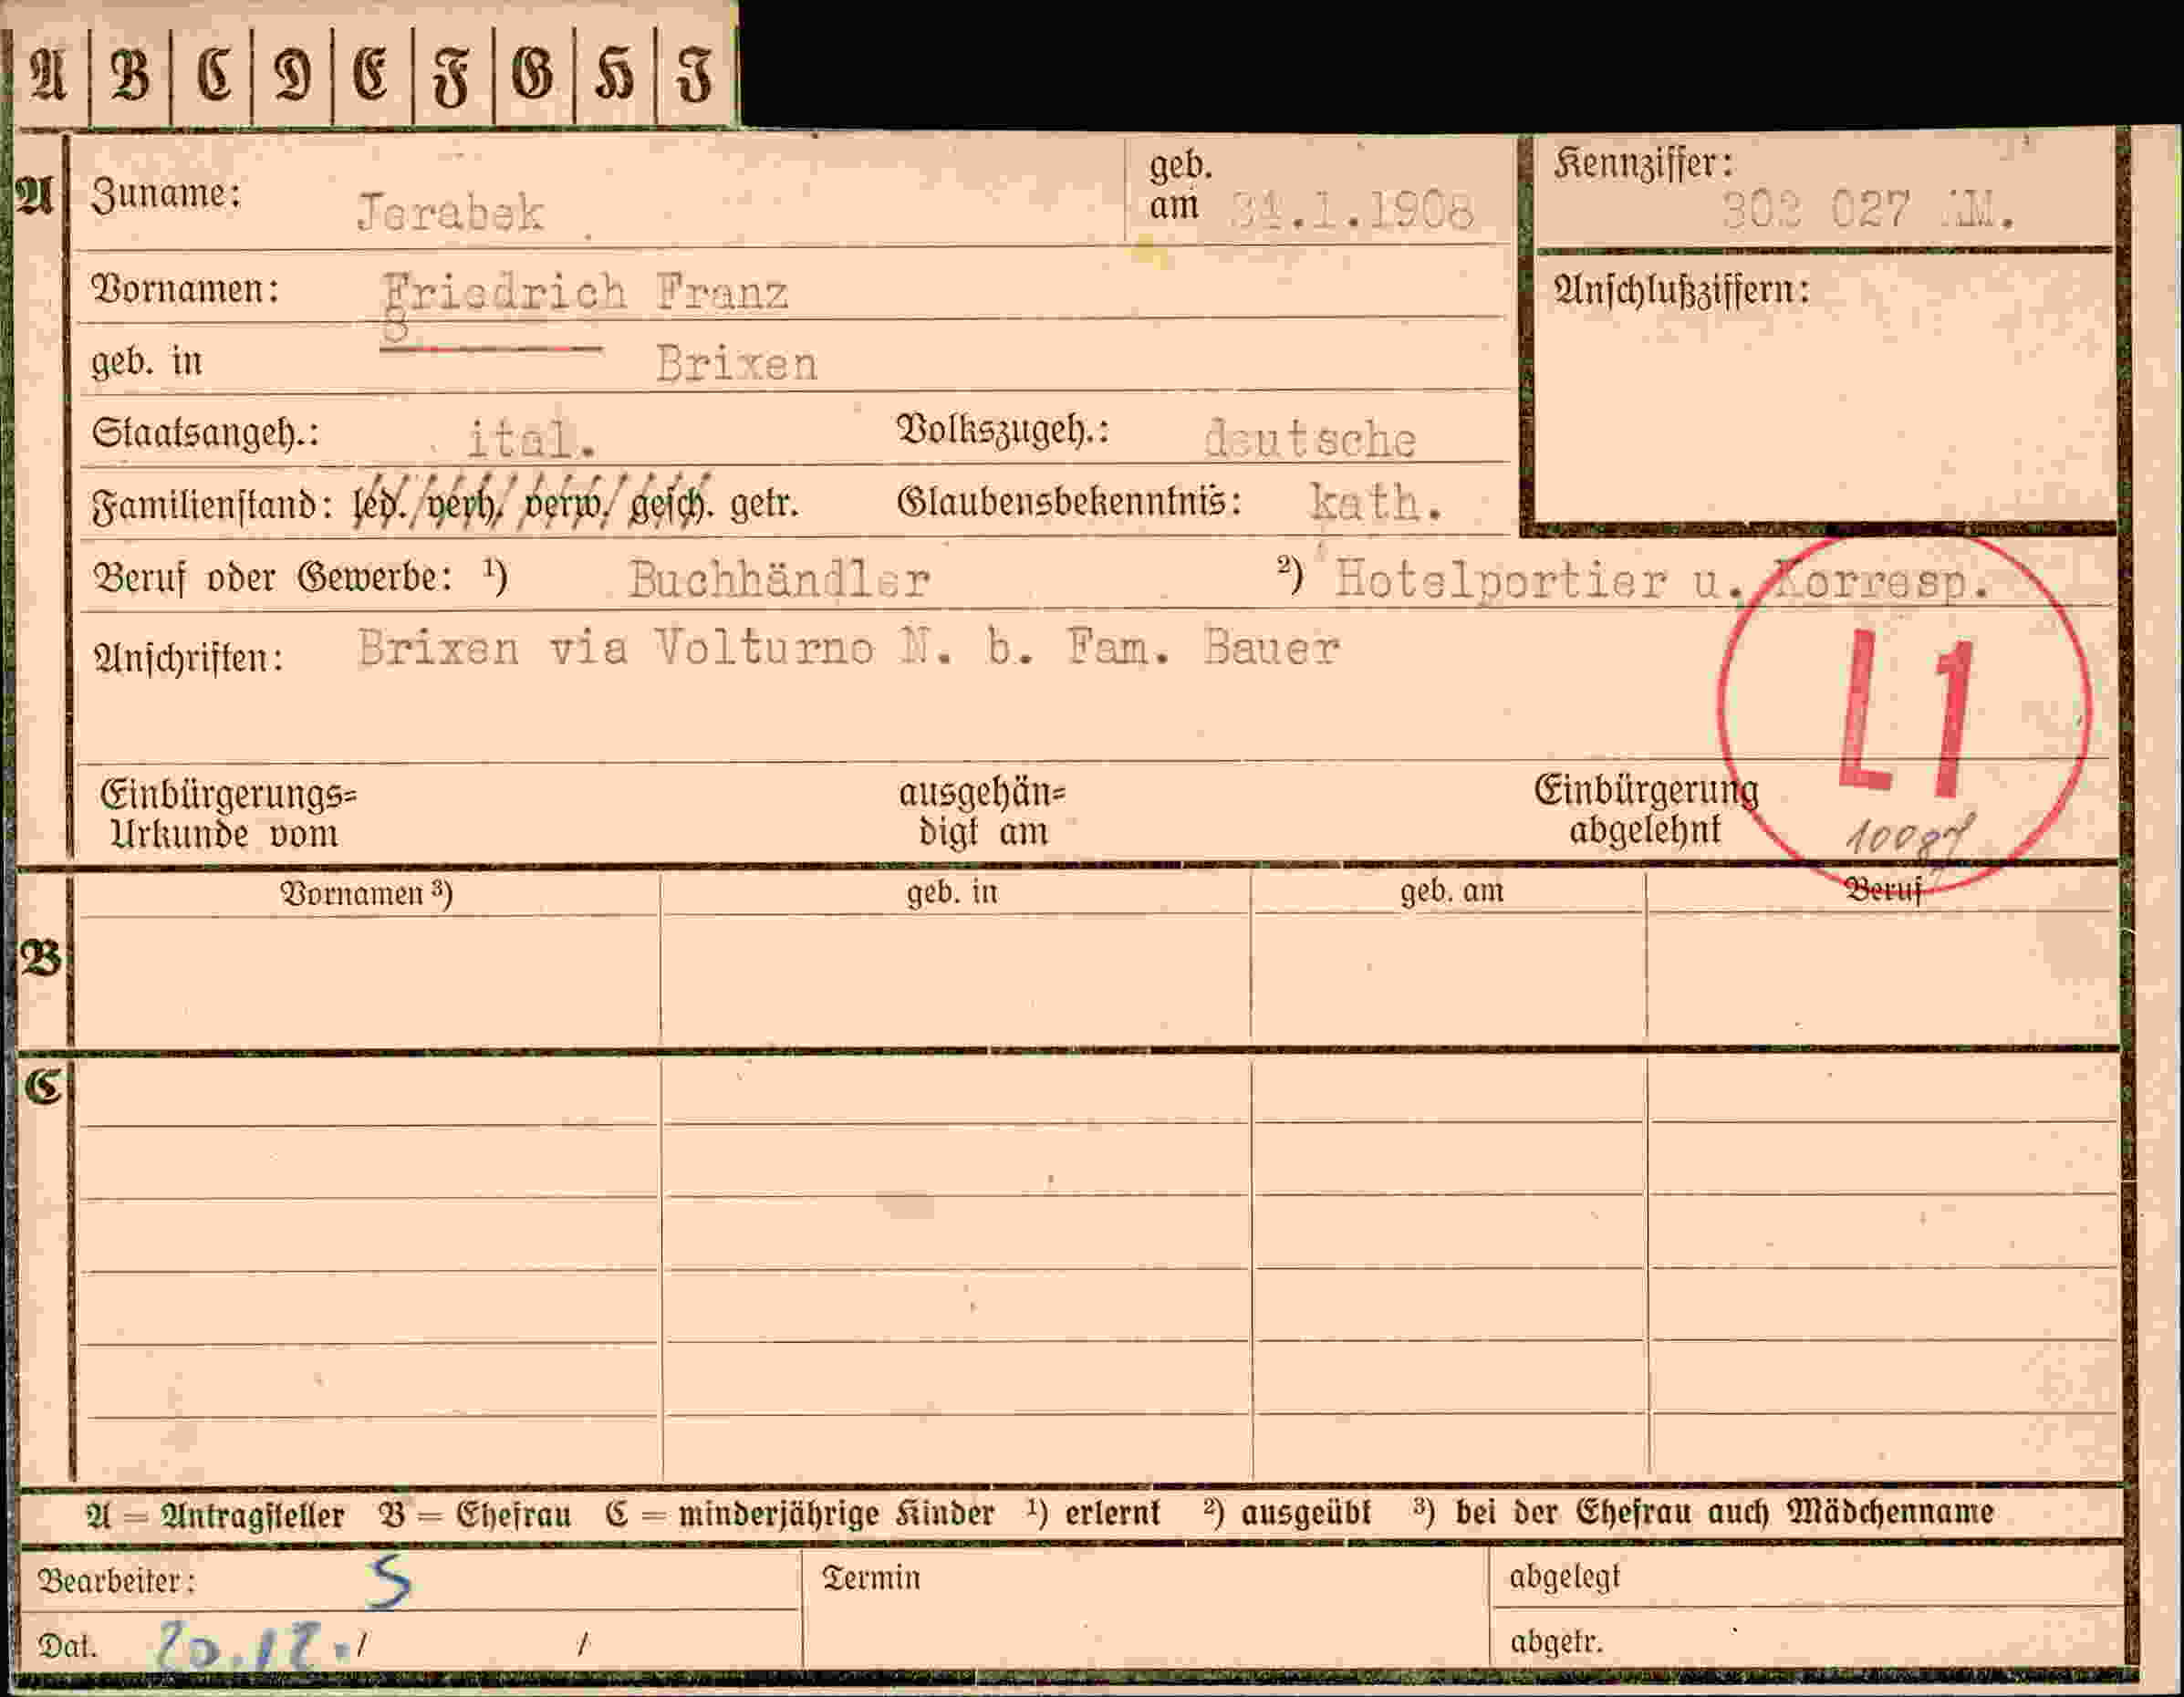 A B C D E F G H I
A Zuname: Jerabek geb. am 31.1.1908 Kennziffer: 302 027
Vornamen: Friedrich Franz Anschlußziffern:
geb. in Brixen
Staatsangeh.: ital. Volkszugeh.: deutsche
Familienstand: led. verh. verw. gesch. getr. Glaubensbekenntnis: kath.
Beruf oder Gewerbe: ¹) Buchhändler ²) Hotelportier u. Korresp.
Anschriften: Brixen via Volturno N. b. Fam. Bauer
L1
Einbürgerungs=
Urkunde vom
ausgehän=
digt am
Einbürgerung
abgelehnt
Vornamen ³) geb. in geb. am Beruf
B
C
A = Antragsteller B = Ehefrau C = minderjährige Kinder ¹) erlernt ²) ausgeübt ³) bei der Ehefrau auch Mädchenname
Bearbeiter: S Termin abgelegt
Dat. 20.12. / / abgetr.